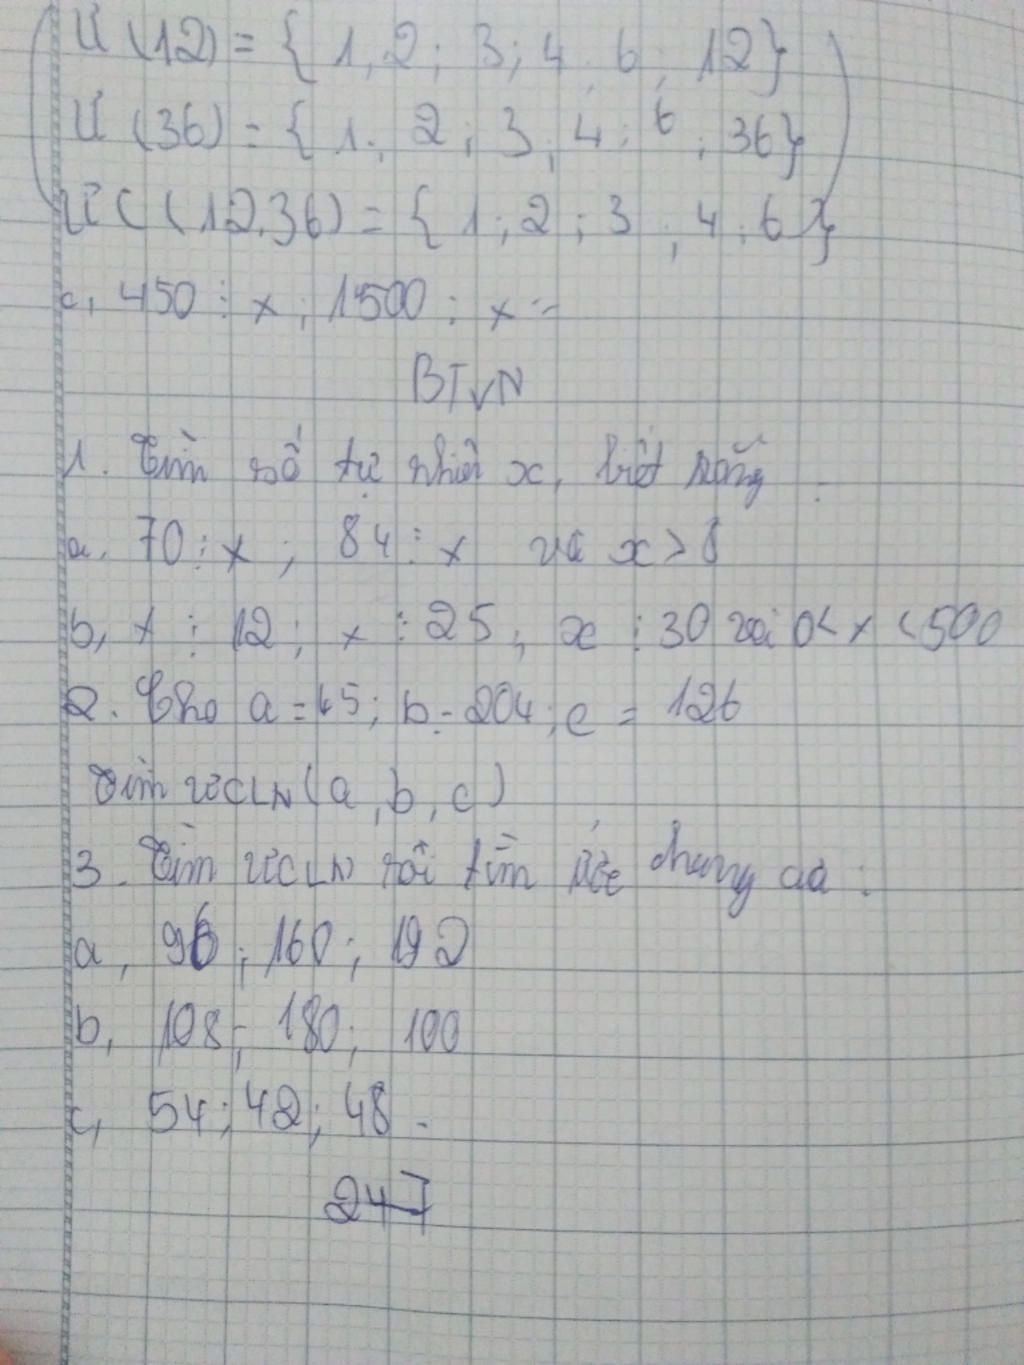 Ư (12) = { 1, 2; 3; 4; 6; 12}
Ư (36) = { 1; 2; 3; 4; 6; 36}
ƯC (12,36) = { 1; 2; 3; 4; 6}
c, 450 ⋮ x; 1500 ⋮ x
BTVN
1. Tìm số tự nhiên x, biết rằng:
a. 70 ⋮ x; 84 ⋮ x và x > 8
b, x ⋮ 12; x ⋮ 25, x ⋮ 30 và 0 < x < 500
2. Cho a = 45; b = 204; c = 126
Tìm ƯCLN (a, b, c)
3. Tìm ƯCLN rồi tìm ước chung của:
a, 96; 160; 192
b, 108; 180; 100
c, 54; 42; 48.